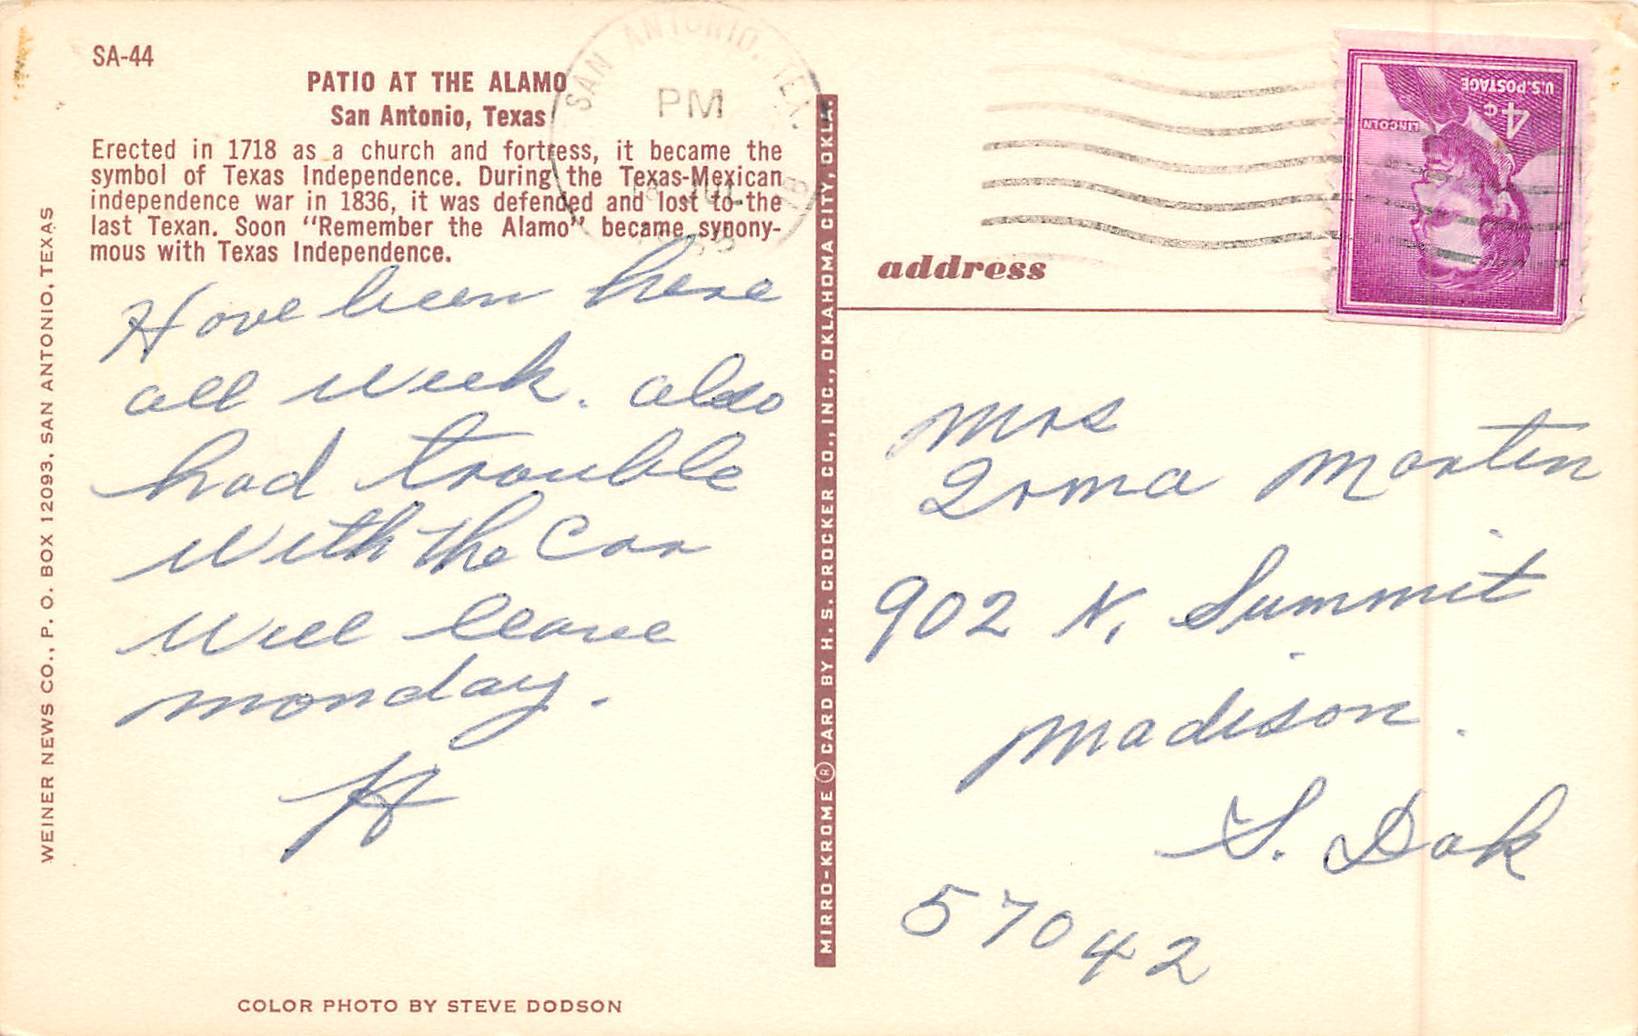 SA-44
PATIO AT THE ALAMO
San Antonio, Texas
Erected in 1718 as a church and fortress, it became the
symbol of Texas Independence. During the Texas-Mexican
independence war in 1836, it was defended and lost to the
last Texan. Soon "Remember the Alamo" became synony-
mous with Texas Independence.
Have been here
all week. also
had trouble
with the Car
Will leave
monday.
H
COLOR PHOTO BY STEVE DODSON
WEINER NEWS CO., P. O. BOX 12093, SAN ANTONIO, TEXAS
MIRRO-KROME ® CARD BY H. S. CROCKER CO., INC., OKLAHOMA CITY, OKLA.
SAN ANTONIO, TEX.
PM
JUL
U.S. POSTAGE
4¢
LINCOLN
address
Mrs
Irma Martin
902 N. Summit
Madison.
S. Dak
57042